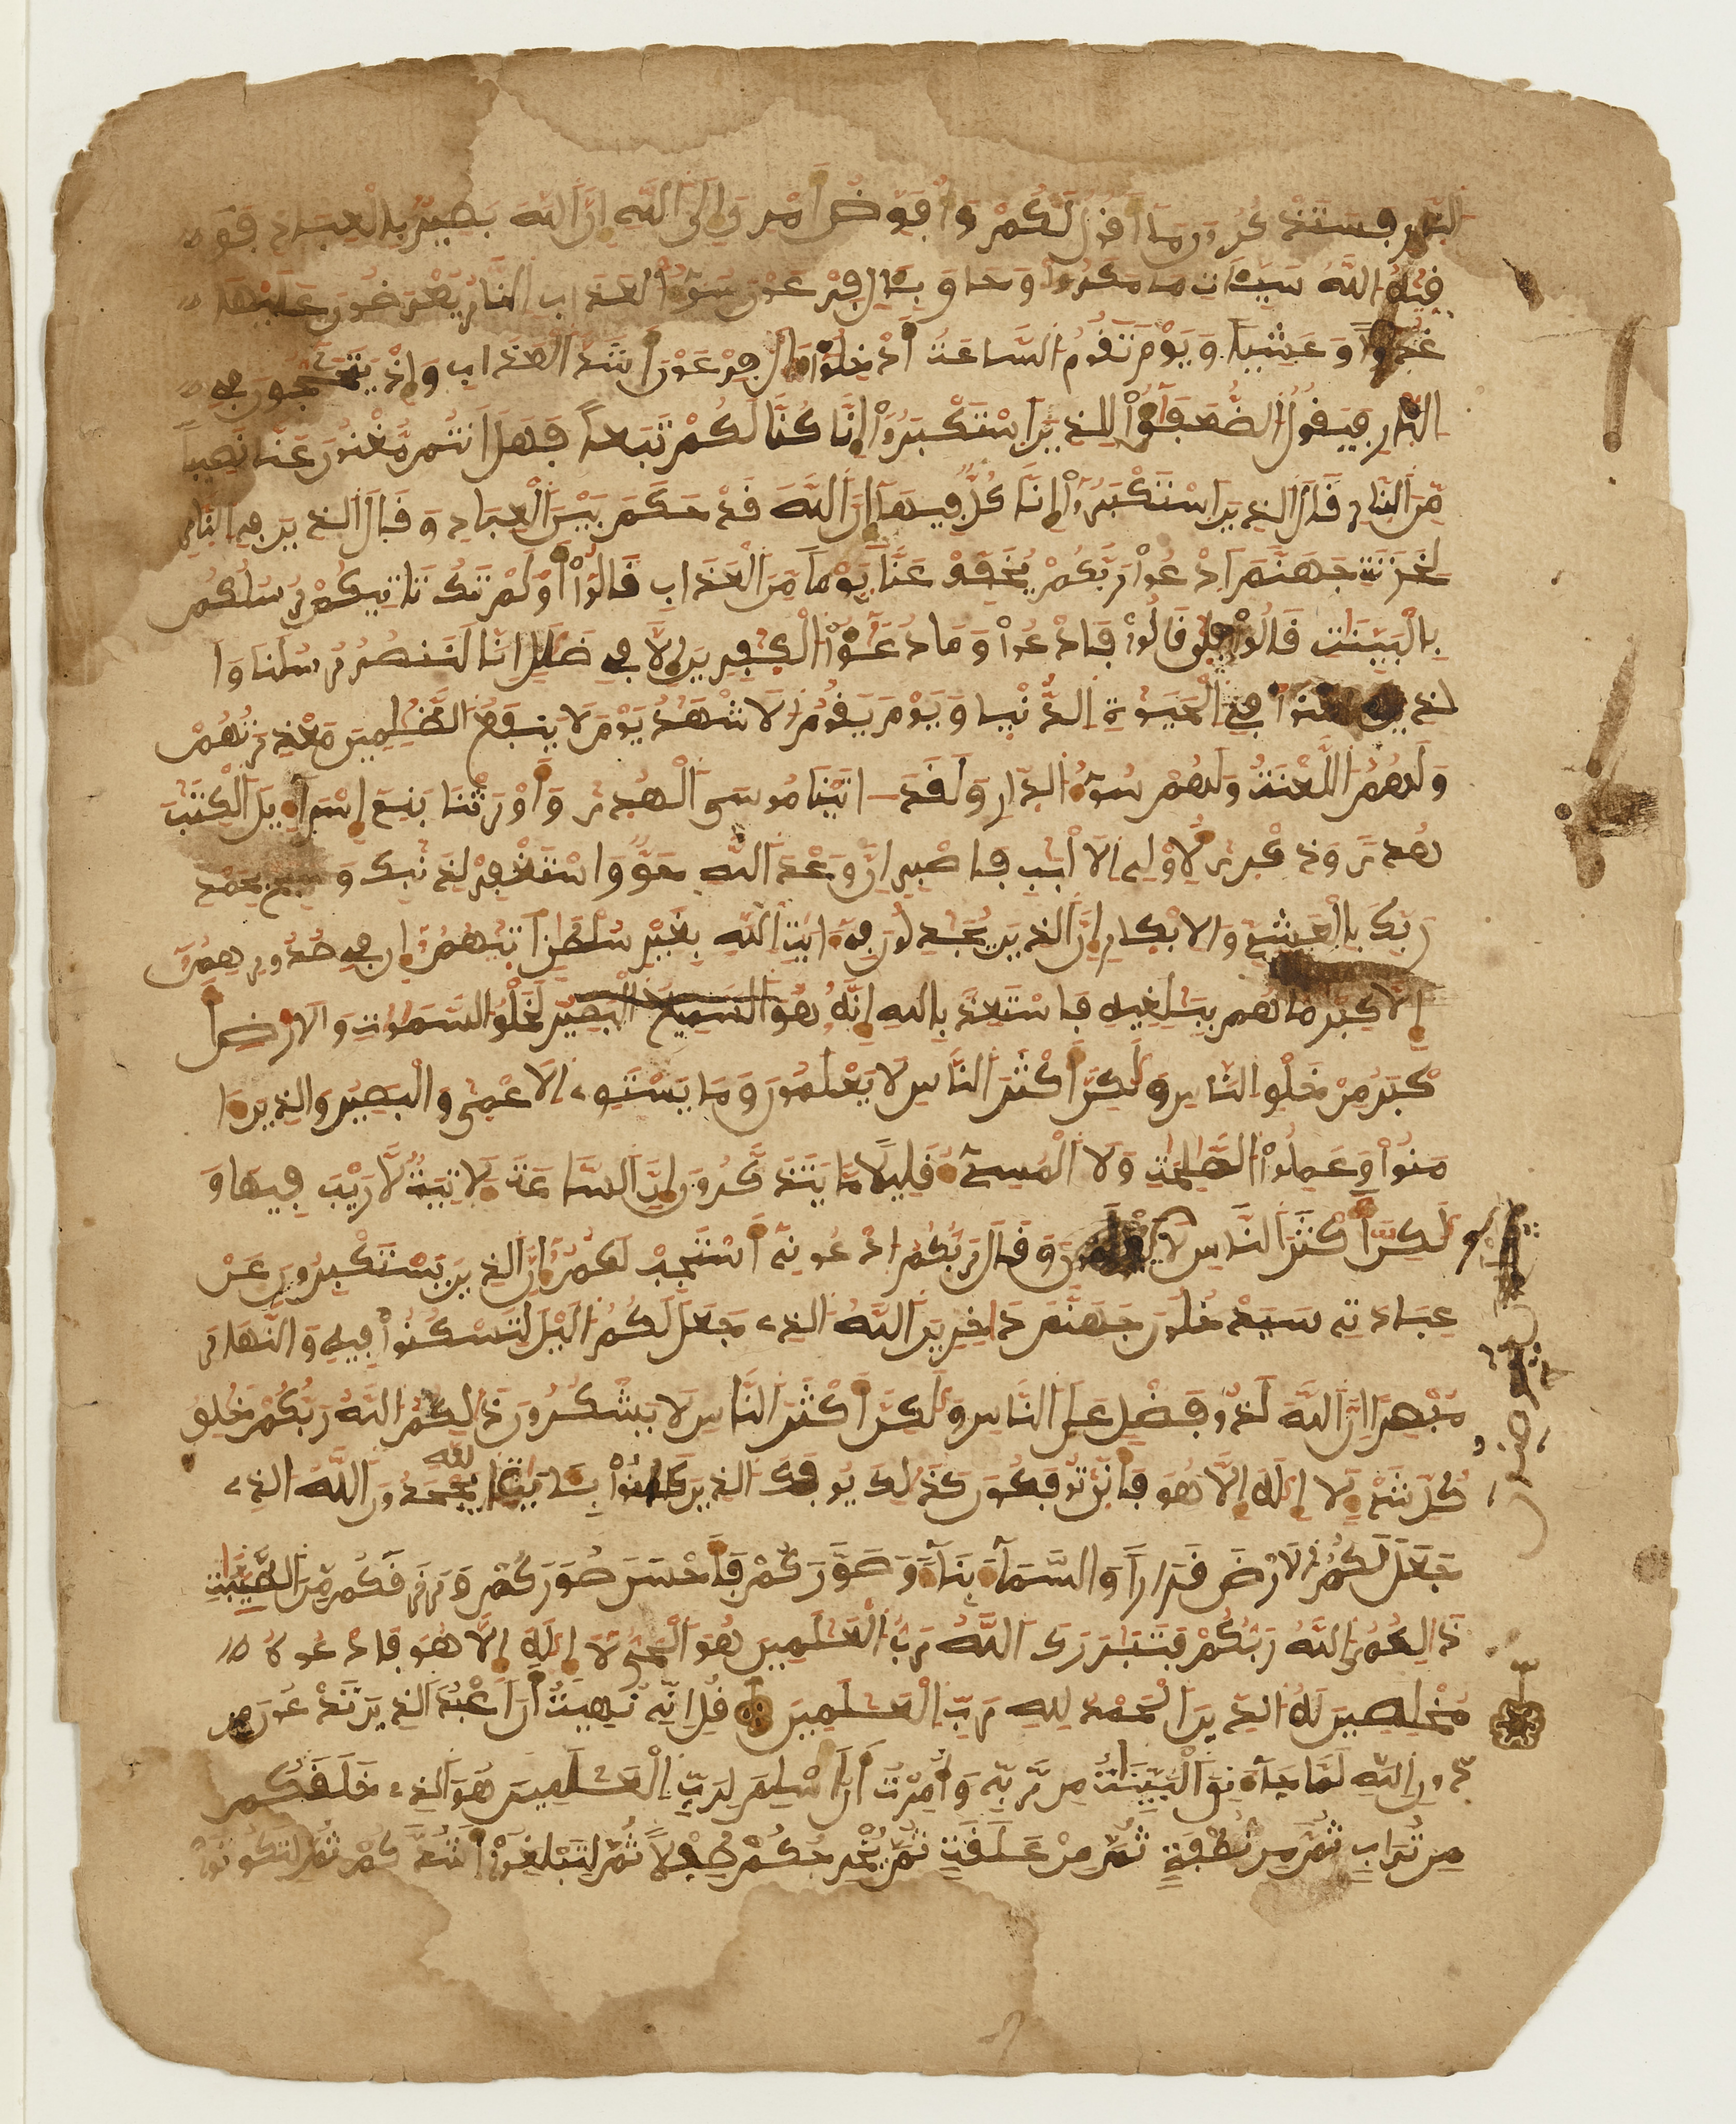 النار فستذكرون ما أقول لكم وأفوض أمرى إلى الله إن الله بصير بالعباد فو
قيه الله سيئات ما مكروا وحاق بئال فرعون سوء العذاب النار يعرضون عليها
غدوا وعشيا ويوم تقوم الساعة أدخلوا ءال فرعون أشد العذاب وإذ يتحاجون في
النار فيقول الضعفؤا للذين استكبروا إنا كنا لكم تبعا فهل انتم مغنون عنا نصيبا
من النار قال الذين استكبروا إنا كل فيها إن الله قد حكم بين العباد وقال الذين في النار
لخزنة جهنم ادعوا ربكم يخفف عنا يوما من العذاب قالوا أولم تك تاتيكم رسلكم
بالبينت قالوا بلى قالوا فادعوا وما دعؤا الكفرين إلا في ضلل انا لننصر رسلنا وا
لذين ءامنوا في الحيوة الدنيا ويوم يقوم الاشهد يوم لا ينفع الظلمين معذرتهم
ولهم اللعنة ولهم سوء الدار ولقد اتينا موسى الهدى وأورثنا بني إسراءيل الكتب
هدى وذكرى لأولي الالبب فاصبر ان وعد الله حق واستغفر لذنبك وسبح بحمد
ربك بالعشي والابكر إن الذين يجدلون في ءايت الله بغير سلطن أتيهم إن في صدورهم
إلا كبر ما هم ببلغيه فاستعذ بالله إنه هو السميع البصير لخلق السموت والارض أ
كبر من خلق الناس ولكن أكثر الناس لا يعلمون وما يستوي الاعمى والبصير والذين ءا
منوا وعملوا الصلحت ولا المسيء قليلا ما يتذكرون إن الساعة لأتية لا ريب فيها و
لكن أكثر الناس لا يؤمنون وقال ربكم ادعوني أستجب لكم إن الذين يستكبرون عن
عبادتي سيدخلون جهنم داخرين الله الذي جعل لكم اليل لتسكنوا فيه والنهار
مبصرا إن الله لذو فضل على الناس ولكن أكثر الناس لا يشكرون ذلكم الله ربكم خلق
كل شيء لا إله إلا هو فأنى توفكون كذلك يوفك الذين كانوا بئايت الله يجحدون الله الذي
جعل لكم الارض قرارا والسماء بناء وصوركم فأحسن صوركم ورزقكم من الطيبت
ذالكم الله ربكم فتبرك الله رب العلمين هو الحي لا إله إلا هو فادعوه
مخلصين له الدين الحمد لله رب العلمين قل اني نهيت أن أعبد الذين تدعون من
دون الله لما جاءني البينت من ربي وأمرت أن أسلم لرب العلمين هو الذي خلقكم
من تراب ثم من نطفة ثم من علقة ثم يخرجكم طفلا ثم لتبلغوا أشدكم ثم لتكونوا